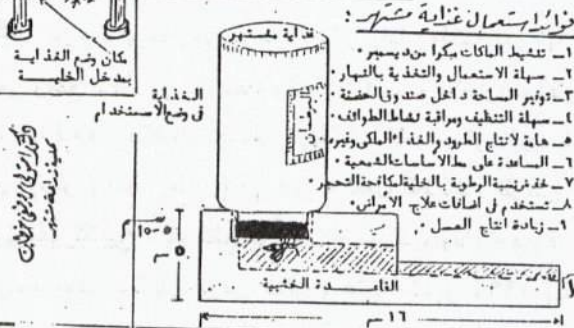 فوائد استعمال غذاية مشتهر :
١ــ تنشيط الملكات مبكرا من ديسمبر .
٢ــ سهلة الاستعمال والتغذية بالنهار .
٣ــ توفير المساحة داخل صندوق الحضنة .
٤ــ سهلة التنظيف ومراقبة نشاط الطوائف .
٥ــ هامة لانتاج الطرود والغذاء الملكى وغيره .
٦ــ المساعدة على مط الاساسات الشمعية .
٧ــ خفض نسبة الرطوبة بالخلية لمكافحة التحجر .
٨ــ تستخدم فى اضافات علاج الأمراض .
٩ــ زيادة انتاج العسل .
غذاية بمشتهر
الغذاية
فى وضع الاستخدام
مكان وضع الغذاية
بمدخل الخلية
القاعدة الخشبية
٥
١٦ سم